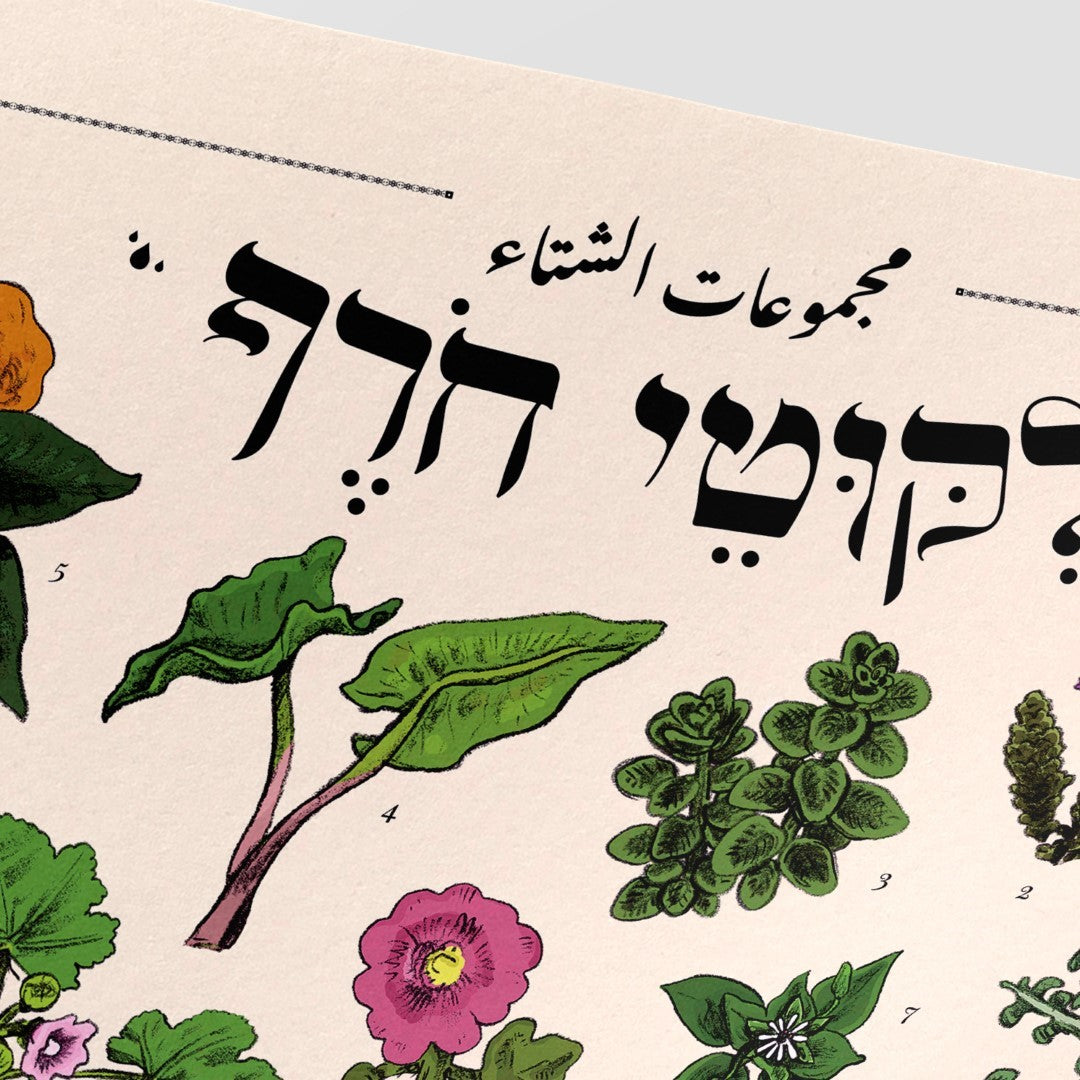 مجموعات الشتاء
לִקּוּטֵי חֹרֶף
5
4
3
2
7